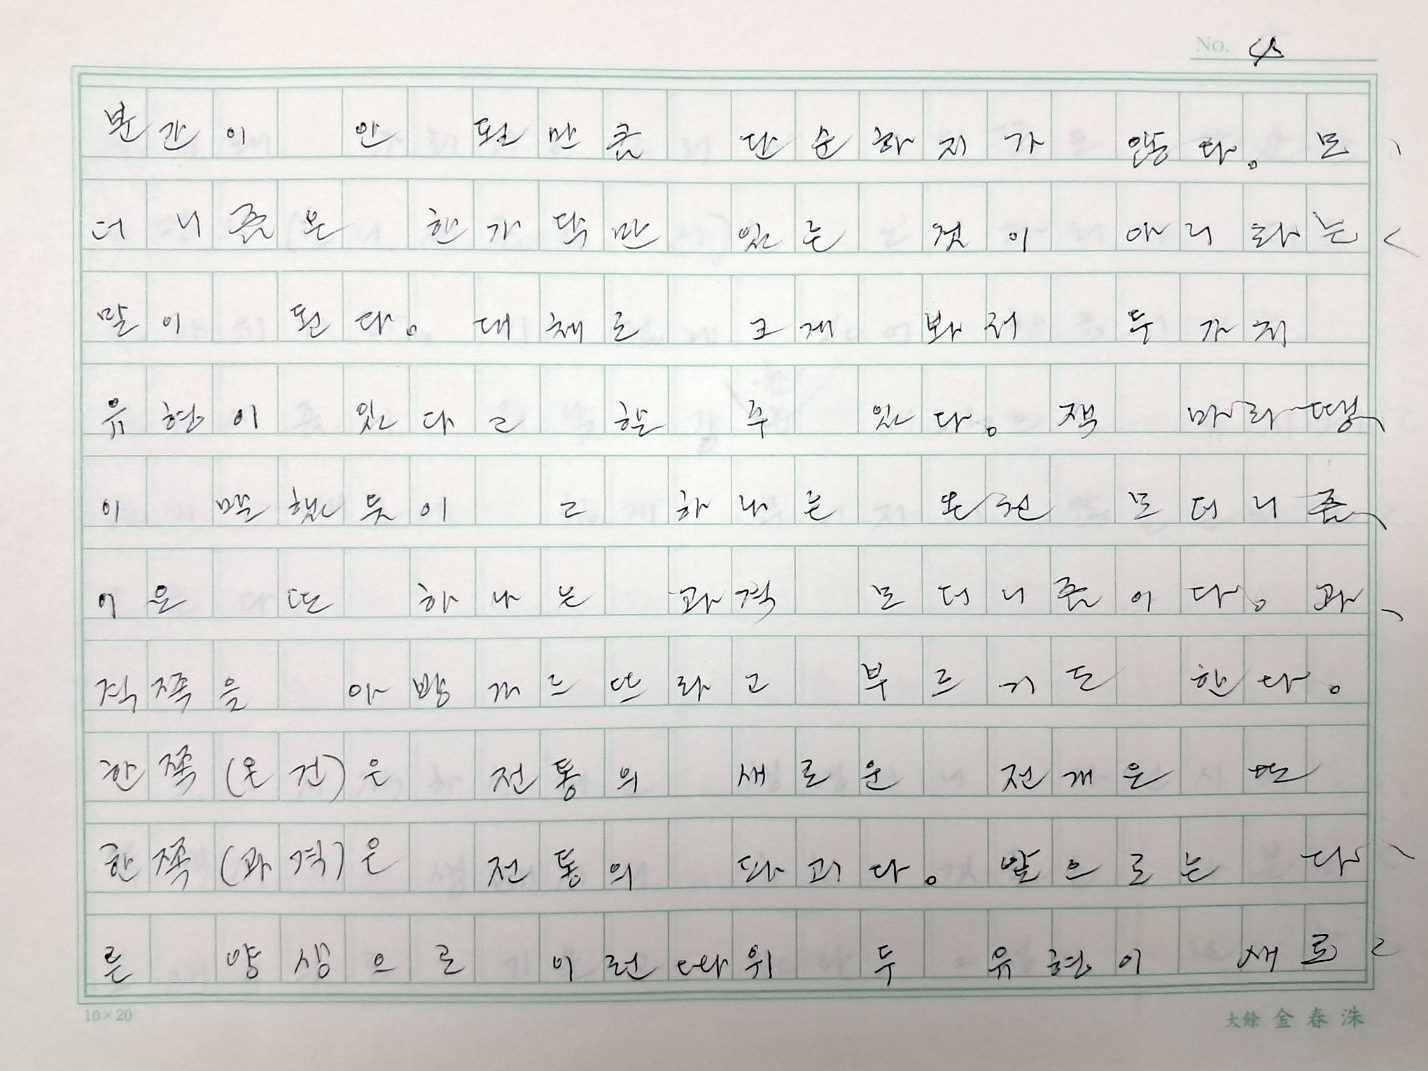 No. 4
분간이 안 된 만큼 단순하지가 않다. 모
더니즘은 한가닥만 있는 것이 아니라는
말이 된다. 대체로 크게 봐서 두 가지
유형이 있다고 할 수 있다. 잭 마리땡
이 말했듯이 그 하나는 온건 모더니즘
이요 또 하나는 과격 모더니즘이다. 과
격쪽을 아방가르드라고 부르기도 한다.
한쪽(온건)은 전통의 새로운 전개요 또
한쪽(과격)은 전통의 파괴다. 앞으로는 다
른 양상으로 이런따위 두 유형이 새로
10×20
大餘 金春洙